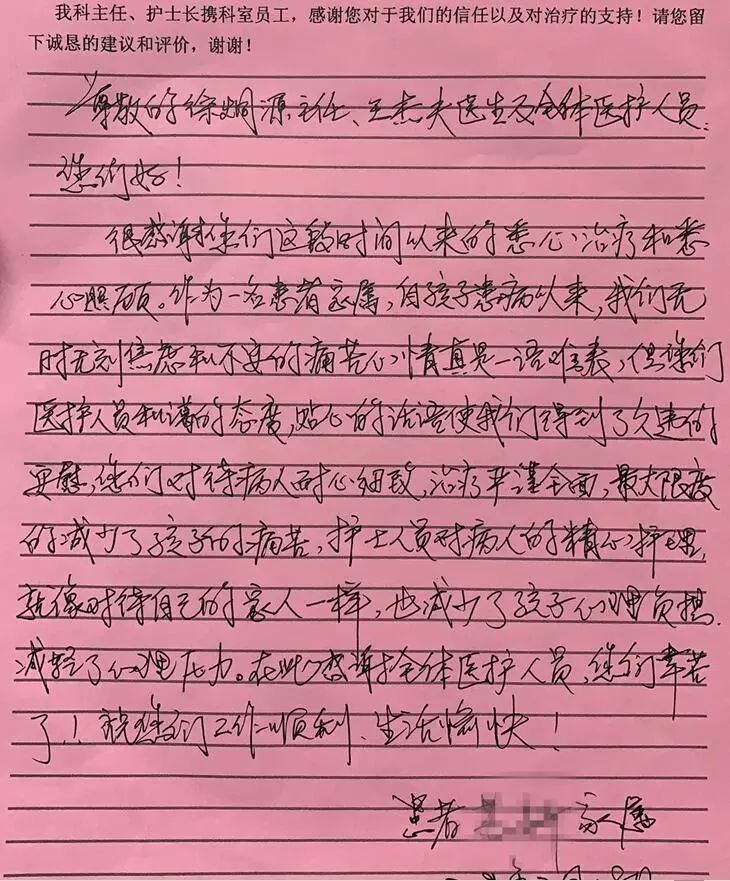 我科主任、护士长携科室员工，感谢您对于我们的信任以及对治疗的支持！请您留
下诚恳的建议和评价，谢谢！
尊敬的徐炯源主任、王杰夫医生及全体医护人员：
您们好！
很感谢您们这段时间以来的悉心治疗和悉
心照顾。作为一名患者家属，自孩子患病以来，我们无
时无刻焦虑和不安的痛苦心情真是一语难表，但您们
医护人员和蔼的态度，贴心的话语使我们得到了欠连的
安慰，您们对待病人耐心细致，治疗严谨全面，最大限度
的减少了孩子的痛苦，护士人员对病人的精心护理，
就像对待自己的家人一样，也减少了孩子心理负担，
减轻了心理压力。在此感谢全体医护人员，您们辛苦
了！祝您们工作顺利、生活愉快！
患者 家属